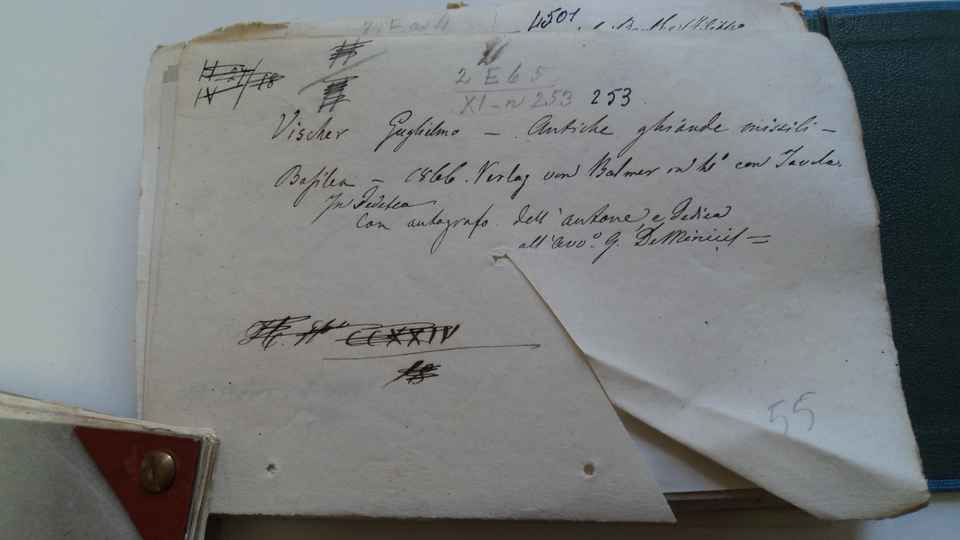 4501.
2 E 65
XI - n 253 253.
Vischer Guglielmo — Antiche ghiande missili —
Basilea — 1866. Verlag von Balmer in 4° con Tavola.
In Tedesco
con autografo dell'autore e dedica
all'avv.° G. DeMinicis =
CCXXIV
18
55